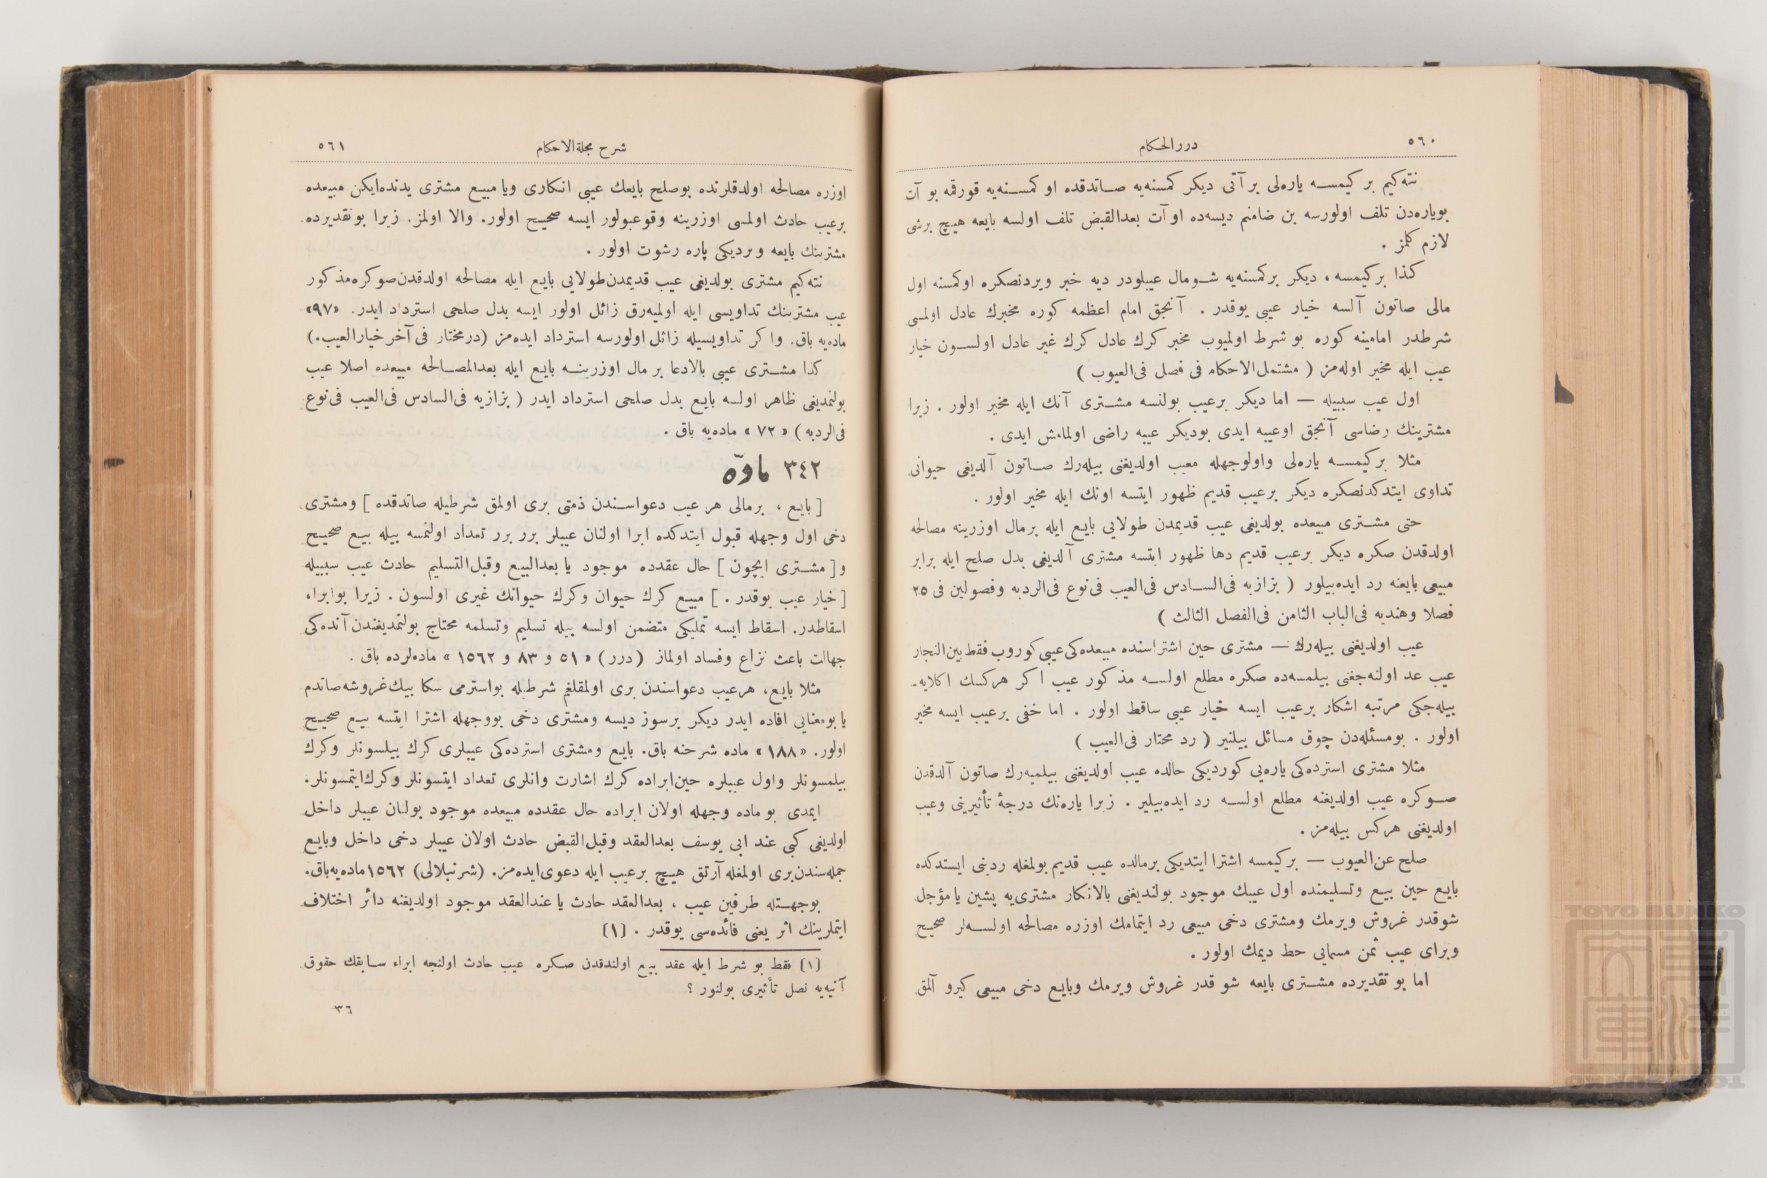 ٥٦٠
دررالحكام
نته‌كيم بر كيمسه ياره‌لى بر آتى ديكر كمسنه‌يه صاتدقده او كمسنه‌يه قورقمه بو آت
بوياره‌دن تلف اولورسه بن ضامنم ديسه‌ده او آت بعدالقبض تلف اولسه بايعه هيچ برشى
لازم كلمز .
كذا بر كيمسه ، ديكر بركمسنه‌يه شو مال عيبلودر ديه خبر ويردنصكره اوكمسنه اول
مالى صاتون آلسه خيار عيبى يوقدر . آنجق امام اعظمه كوره مخبرك عادل اولمسى
شرطدر امامينه كوره بو شرط اولميوب مخبر كرك عادل كرك غير عادل اولسون خيار
عيب ايله مخير اوله‌مز ( مشتمل‌الاحكام فى فصل فى‌العيوب )
اول عيب سببيله — اما ديكر برعيب بولنسه مشترى آنك ايله مخير اولور . زيرا
مشترينك رضاسى آنجق اوعيبه ايدى بوديكر عيبه راضى اولمامش ايدى .
مثلا بر كيمسه ياره‌لى واولوجهله معيب اولديغنى بيله‌رك صاتون آلديغى حيوانى
تداوى ايتدكدنصكره ديكر برعيب قديم ظهور ايتسه اونك ايله مخير اولور .
حتى مشترى مبيعده بولديغى عيب قديمدن طولايى بايع ايله برمال اوزرينه مصالحه
اولدقدن صكره ديكر برعيب قديم دها ظهور ايتسه مشترى آلديغى بدل صلح ايله برابر
مبيعى بايعنه رد ايده‌بيلور ( بزازيه فى‌السادس فى‌العيب فى‌نوع فى‌الرديه وفصولين فى ٢٥
فصلا وهنديه فى‌الباب الثامن فى‌الفصل الثالث )
عيب اولديغنى بيله‌رك — مشترى حين اشتراسنده مبيعده‌كى عيبى كوروب فقط بين‌التجار
عيب عد اولنه‌جغنى بيلمسه‌ده صكره مطلع اولسه مذكور عيب اكر هركسك اكلايه‌
بيله‌جكى مرتبه اشكار برعيب ايسه خيار عيبى ساقط اولور . اما خفى برعيب ايسه مخير
اولور . بومسئله‌دن چوق مسائل بيلنير ( رد محتار فى‌العيب )
مثلا مشترى استرده‌كى ياره‌يى كورديكى حالده عيب اولديغنى بيلميه‌رك صاتون آلدقدن
صوكره عيب اولديغنه مطلع اولسه رد ايده‌بيلير . زيرا ياره‌نك درجۀ تأثيرينى وعيب
اولديغنى هركس بيله‌مز .
صلح عن‌العيوب — بر كيمسه اشترا ايتديكى برمالده عيب قديم بولمغله ردينى ايستدكده
بايع حين بيع وتسليمنده اول عيبك موجود بولنديغنى بالانكار مشترى‌يه پشين يامؤجل
شوقدر غروش ويرمك ومشترى دخى مبيعى رد ايتمامك اوزره مصالحه اولسه‌لر صحيح
وبراى عيب ثمن مسمايى حط ديمك اولور .
اما بو تقديرده مشترى بايعه شو قدر غروش ويرمك وبايع دخى مبيعى كيرو آلمق
٥٦١
شرح مجلةالاحكام
اوزره مصالحه اولدقلرنده بوصلح بايعك عيبى انكارى ويا مبيع مشترى يدنده‌ايكن مبيعده
برعيب حادث اولمسى اوزرينه وقوعبولور ايسه صحيح اولور. والا اولمز. زيرا بوتقديرده
مشترينك بايعه ويرديكى پاره رشوت اولور .
نته‌كيم مشترى بولديغى عيب قديمدن‌طولايى بايع ايله مصالحه اولدقدن‌صوكره‌مذكور
عيب مشترينك تداويسى ايله اولميه‌رق زائل اولور ايسه بدل صلحى استرداد ايدر. «٩٧»
ماده‌يه باق. واكر تداويسيله زائل اولورسه استرداد ايده‌مز (درمختار فى‌آخر خيارالعيب.)
كذا مشترى عيبى بالادعا بر مال اوزرينه بايع ايله بعدالمصالحه مبيعده اصلا عيب
بولنمديغى ظاهر اولسه بايع بدل صلحى استرداد ايدر ( بزازيه فى‌السادس فى‌العيب فى‌نوع
فى‌الرديه ) « ٧٢ » ماده‌يه باق .
٣٤٢ مادّه
[ بايع ، برمالى هر عيب دعواسندن ذمتى برى اولمق شرطيله صاتدقده ] ومشترى
دخى اول وجهله قبول ايتدكده ابرا اولنان عيبلر برر برر تعداد اولنمسه بيله بيع صحيح
و [ مشترى ايچون ] حال عقدده موجود يا بعدالبيع وقبل‌التسليم حادث عيب سببيله
[ خيار عيب يوقدر . ] مبيع كرك حيوان وكرك حيوانك غيرى اولسون . زيرا بوابرا،
اسقاطدر. اسقاط ايسه تمليكى متضمن اولسه بيله تسليم وتسلمه محتاج بولنمديغندن آنده‌كى
جهالت باعث نزاع وفساد اولماز (درر) « ٥١ و ٨٣ و ١٥٦٢ » ماده‌لرده باق .
مثلا بايع، هرعيب دعواسندن برى اولمقلغم شرطيله بواسترمى سكا بيك‌غروشه‌صاتدم
يا بومعنايى افاده ايدر ديكر برسوز ديسه ومشترى دخى بووجهله اشترا ايتسه بيع صحيح
اولور. «١٨٨» ماده شرحنه باق. بايع ومشترى استرده‌كى عيبلرى كرك بيلسونلر وكرك
بيلمسونلر واول عيبلره حين‌ابراده كرك اشارت وانلرى تعداد ايتسونلر وكرك‌ايتمسونلر.
ايمدى بو ماده وجهله اولان ابراده حال عقدده مبيعده موجود بولنان عيبلر داخل
اولديغى كبى عند ابى يوسف بعدالعقد وقبل‌القبض حادث اولان عيبلر دخى داخل وبايع
جمله‌سندن‌برى اولمغله آرتق هيچ برعيب ايله دعوى‌ايده‌مز. (شرنبلالى) ١٥٦٢ماده‌يه‌باق.
بوجهتله طرفين عيب ، بعدالعقد حادث يا عندالعقد موجود اولديغنه دائر اختلاف
ايتملرينك اثر يعنى فائده‌سى يوقدر . (١)
(١) فقط بو شرط ايله عقد بيع اولندقدن صكره عيب حادث اولنجه ابراء سابقك حقوق
آتيه‌يه نصل تأثيرى بولنور ؟
٣٦
TOYO BUNKO